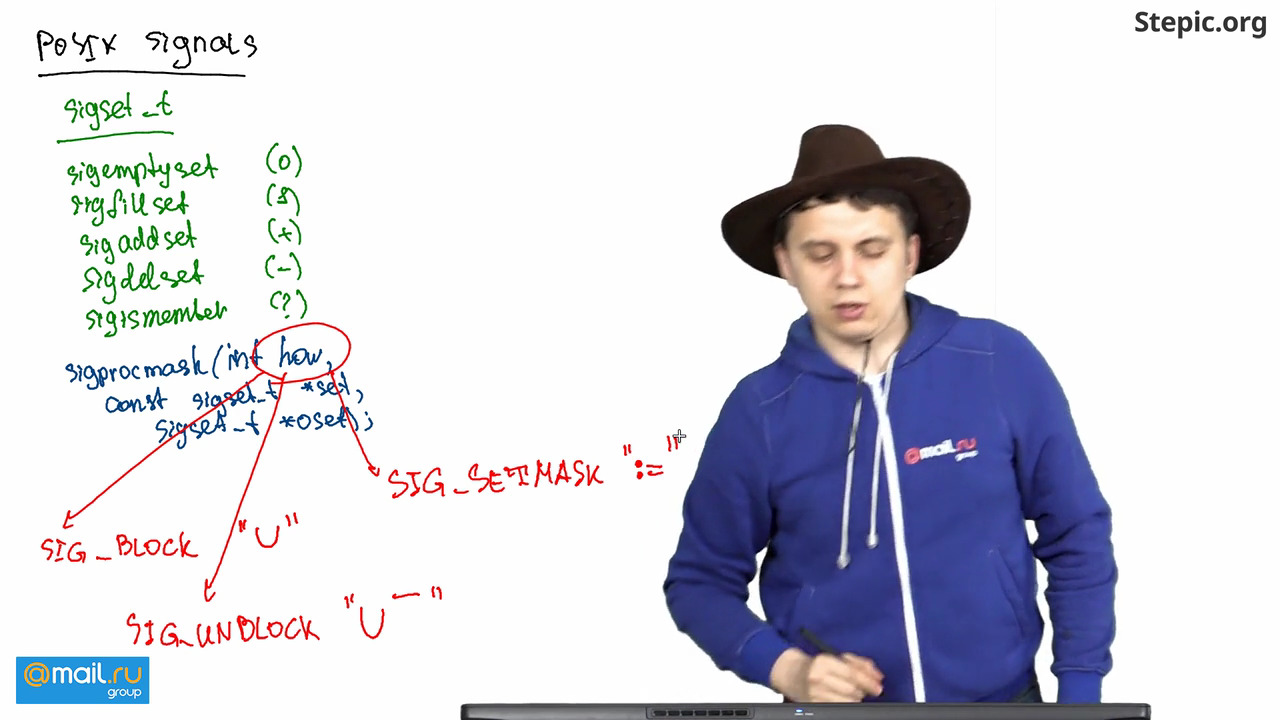 Stepic.org
POSIX signals
sigset_t
sigemptyset (0)
sigfillset (1)
sigaddset (+)
sigdelset (-)
sigismember (?)
sigprocmask(int how,
const sigset_t *set,
sigset_t *oset);
SIG_SETMASK ":="
SIG_BLOCK "∪"
SIG_UNBLOCK "∪⁻"
@mail.ru
group
@mail.ru
group